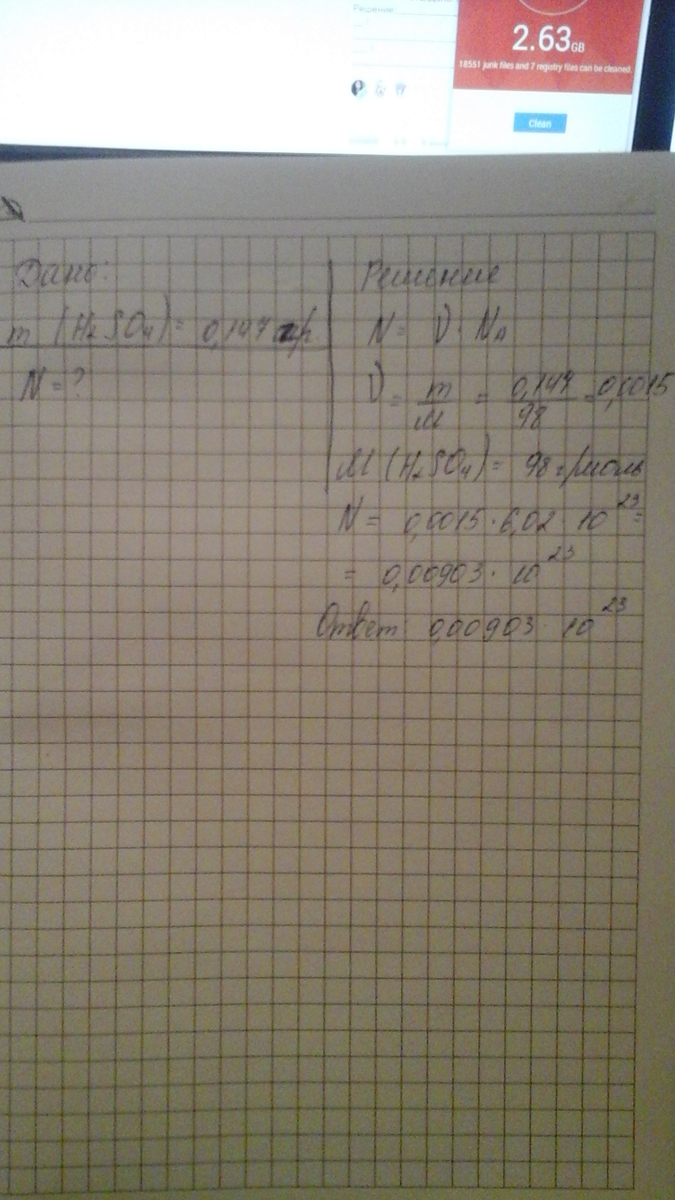 Решение
2.63GB
18551 junk files and 7 registry files can be cleaned
Clean
Дано:
m (H₂SO₄) = 0,147 гр.
N = ?
Решение
N = ν · Nₐ
ν = m/M = 0,147/98 = 0,0015
M (H₂SO₄) = 98 г/моль
N = 0,0015 · 6,02 · 10²³ =
= 0,00903 · 10²³
Ответ: 0,00903 · 10²³